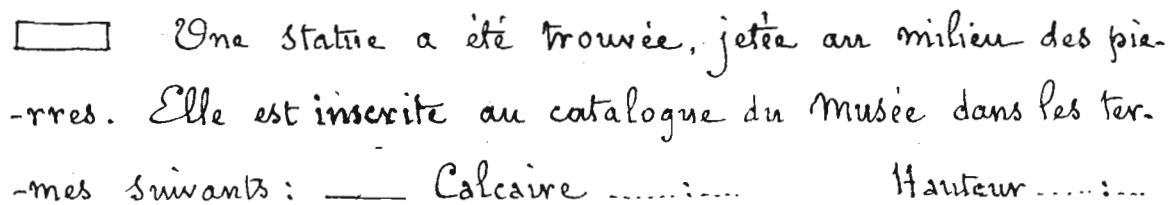 Une statue a été trouvée, jetée au milieu des pie-
-rres. Elle est inscrite au catalogue du Musée dans les ter-
-mes suivants : ___ Calcaire ......:.... Hauteur .....:...